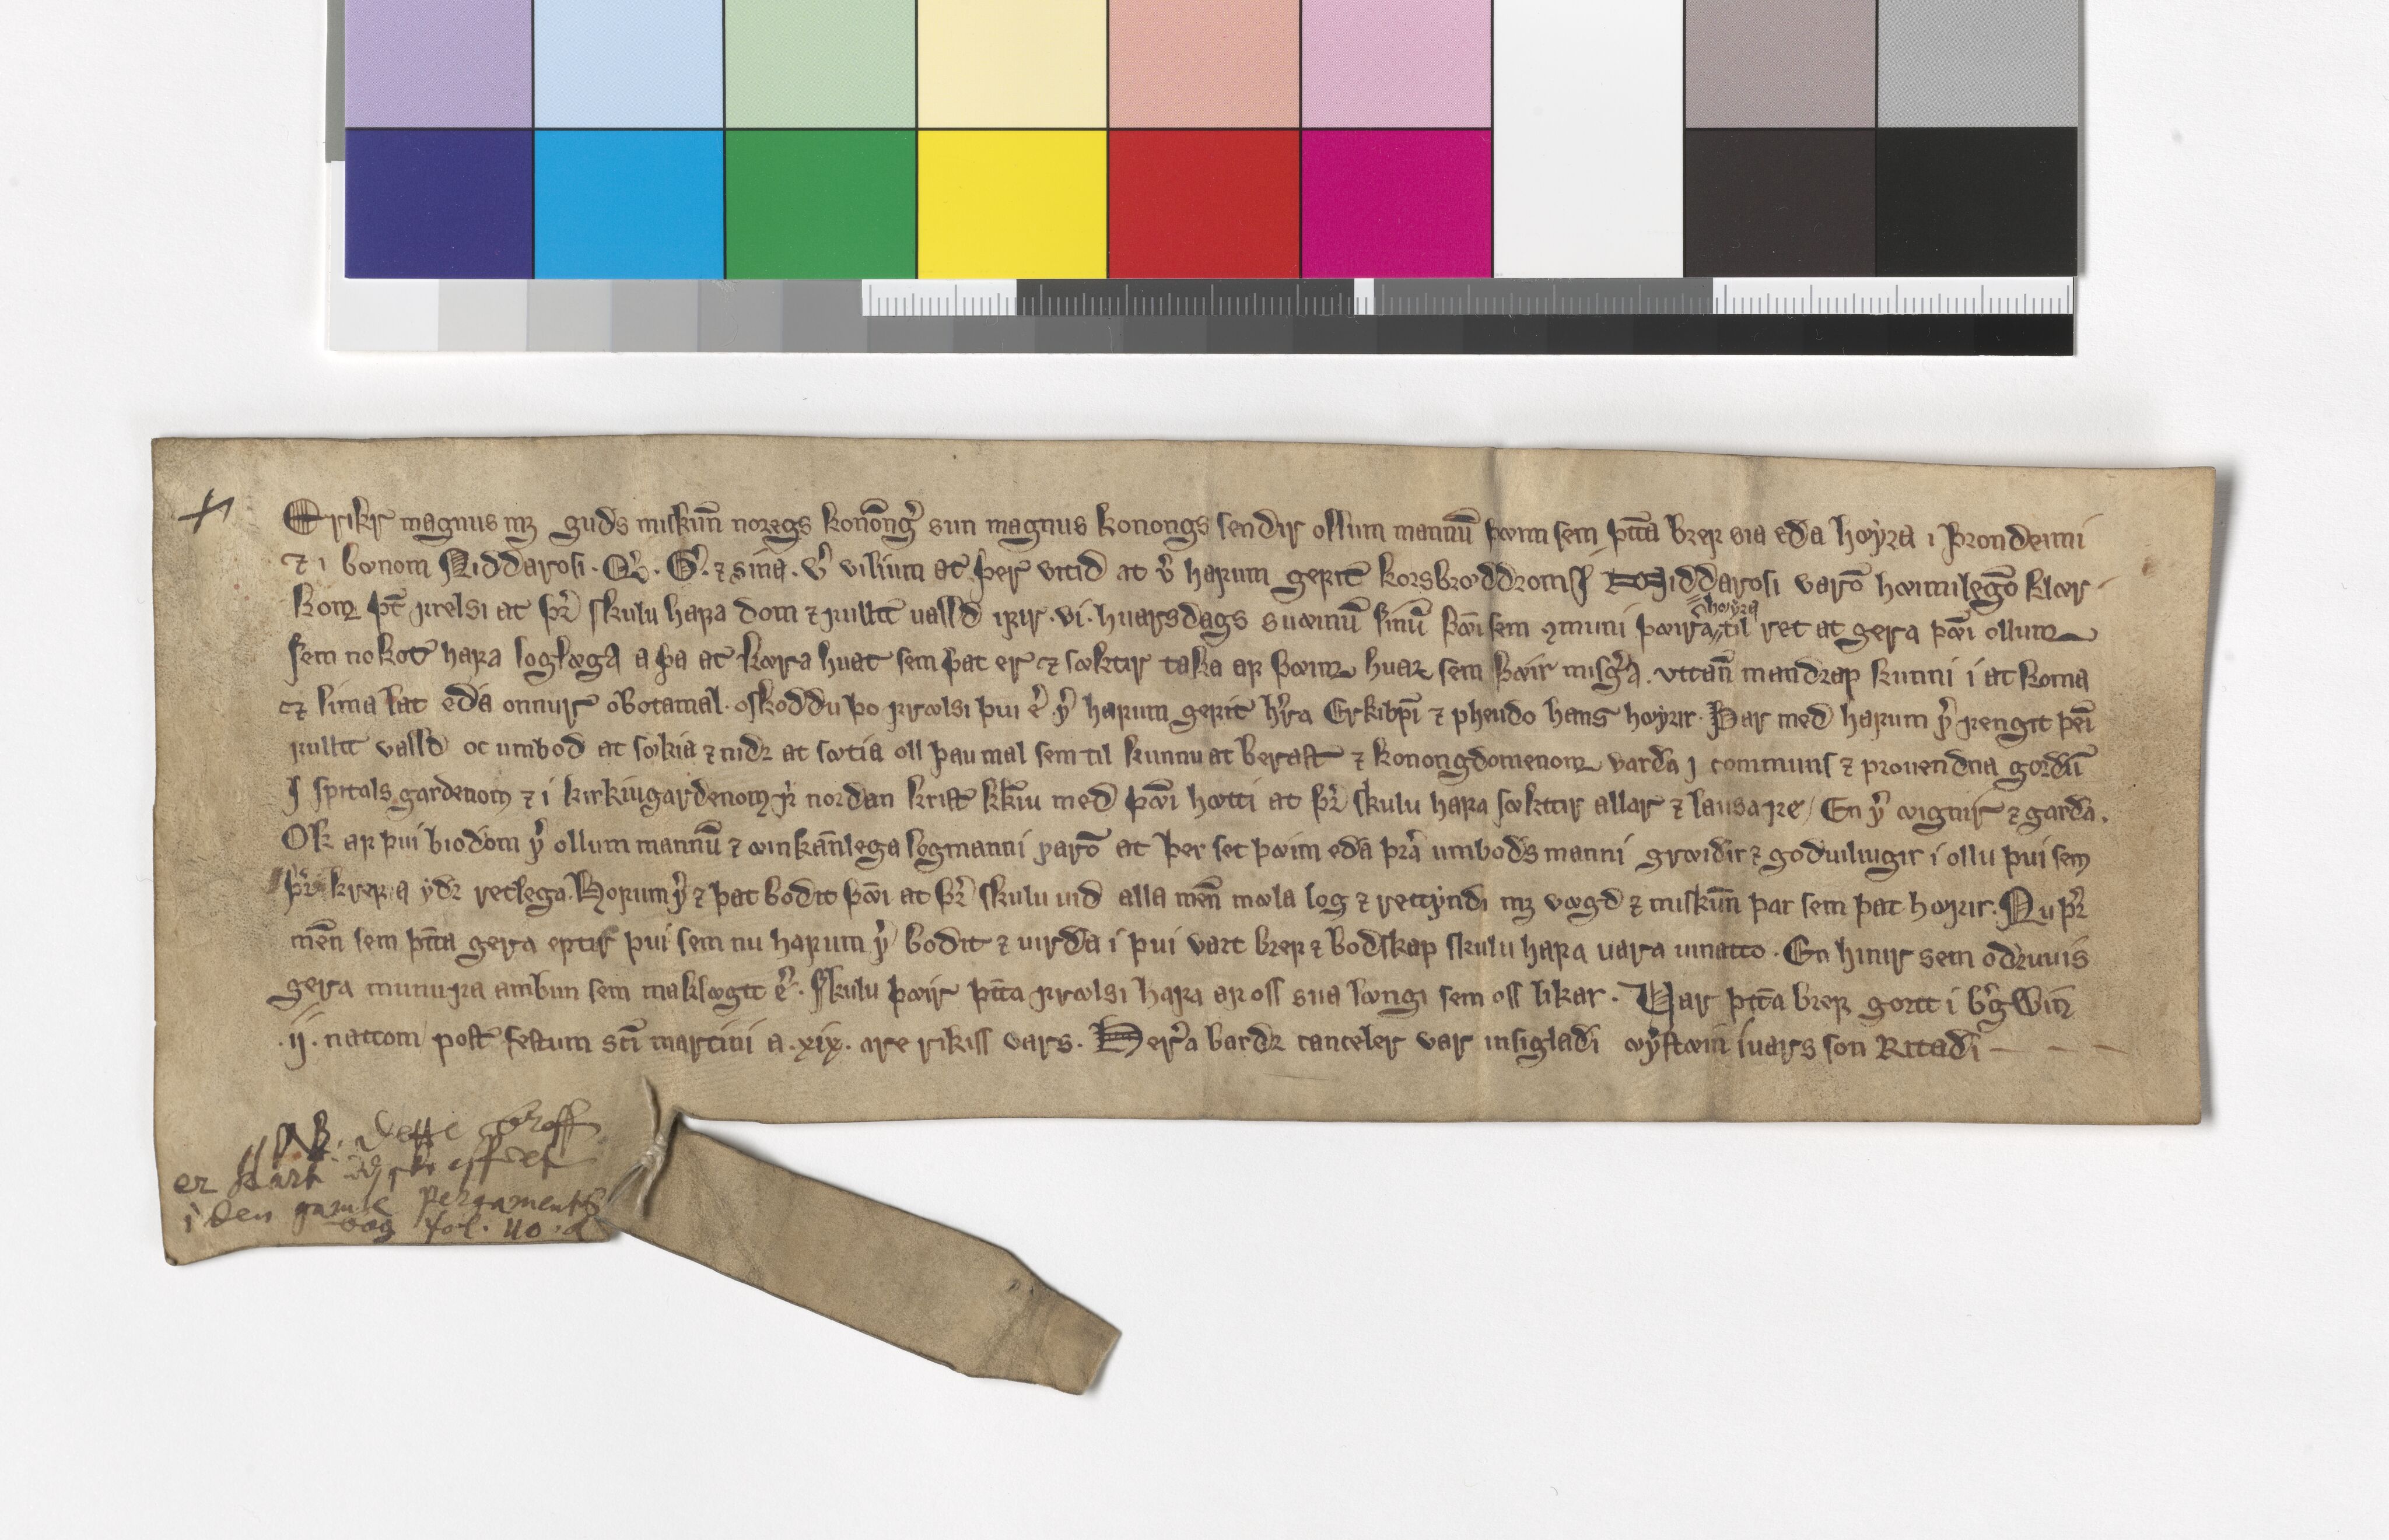 Erikr magnus mʒ guds miskun̅ noregs konon̅gꝛ sun magnus konongs sendir ollum mannu̅ þæim sem þtta bref sia eda hœyra i þrondeimi
⁊ i bœnom Niddarosi. Q. G. ⁊ sina. v̅ vilium at þer vitid at v̅ hafum gefit korsbrœddrom J Niddarosi varo̅ hæimilego̅ klær
kom þt̅ frelsi at þr̅ skulu hafa dom ⁊ fullt ualld ifir .vi. huarsdags suæinu̅ sinu̅ þæi sem ꝯmuni þæira til ret at gera þæi ollum
hœyra
sem nokot hafa loglæga a þa at kæra huat sem þat er ⁊ sœktir taka af þæim huar sem þæir misgꝛa. vttan̅ mandrap kunni i at koma
⁊ lima lat eda onnur obotamal. oskoddu þo frælsi þui e̅ v̅ hafum gefit hr̅a Erkibpi̅ ⁊ þeudo hans hœyrir. Þar med hafum v̅ fengit þei̅
fullt valld oc umbod at sœkia ⁊ nidr at sætia oll þau mal sem til kunnu at berast ⁊ konongdomenom varda J communs ⁊ prouendna gordu̅
J spitals gardenom ⁊ i kirkiugardenom fr̅ nordan krist kk̅iu med þæi hætti at þr̅ skulu hafa sœkttir allar ⁊ lausa fe / En v̅ æignir ⁊ garda.
Ok af þui biodom v̅ ollum mannu̅ ⁊ æinkan̅lega logmanni varo̅ at þer set þæim eda þr̅a umbods manni græidir ⁊ goduiliugir i ollu þui sem
þr̅ kref̣ia ydr retlega. Hofum v̅ ⁊ þat bodit þæi at þr̅ skulu uid alla men̅ mæla log ⁊ rettyndi mʒ vægd ⁊ miskun̅ þar sem þat hœyrir. Nu þr̅
men̅ sem þtta gera eptir þui sem nu hafum v̅ bodit ⁊ uirda i þui vart bref ⁊ bodskap skulu hafa uara uinatto. En hinir sem odruuis
gera munu fa ambun sem maklægit e̅. Skulu þæir þtta frælsi hafa af oss sua længi sem oss likar. Var þtta bref gortt i bꝛgwin
.ij. nattom post festum sci̅ martini a .xix. are rikiss vars. Herꝛa bardr canceler var insigladi œystæin iuars son Ritadi
NB. dette breff
er
i den gamle pergaments
bog fol. 40. a